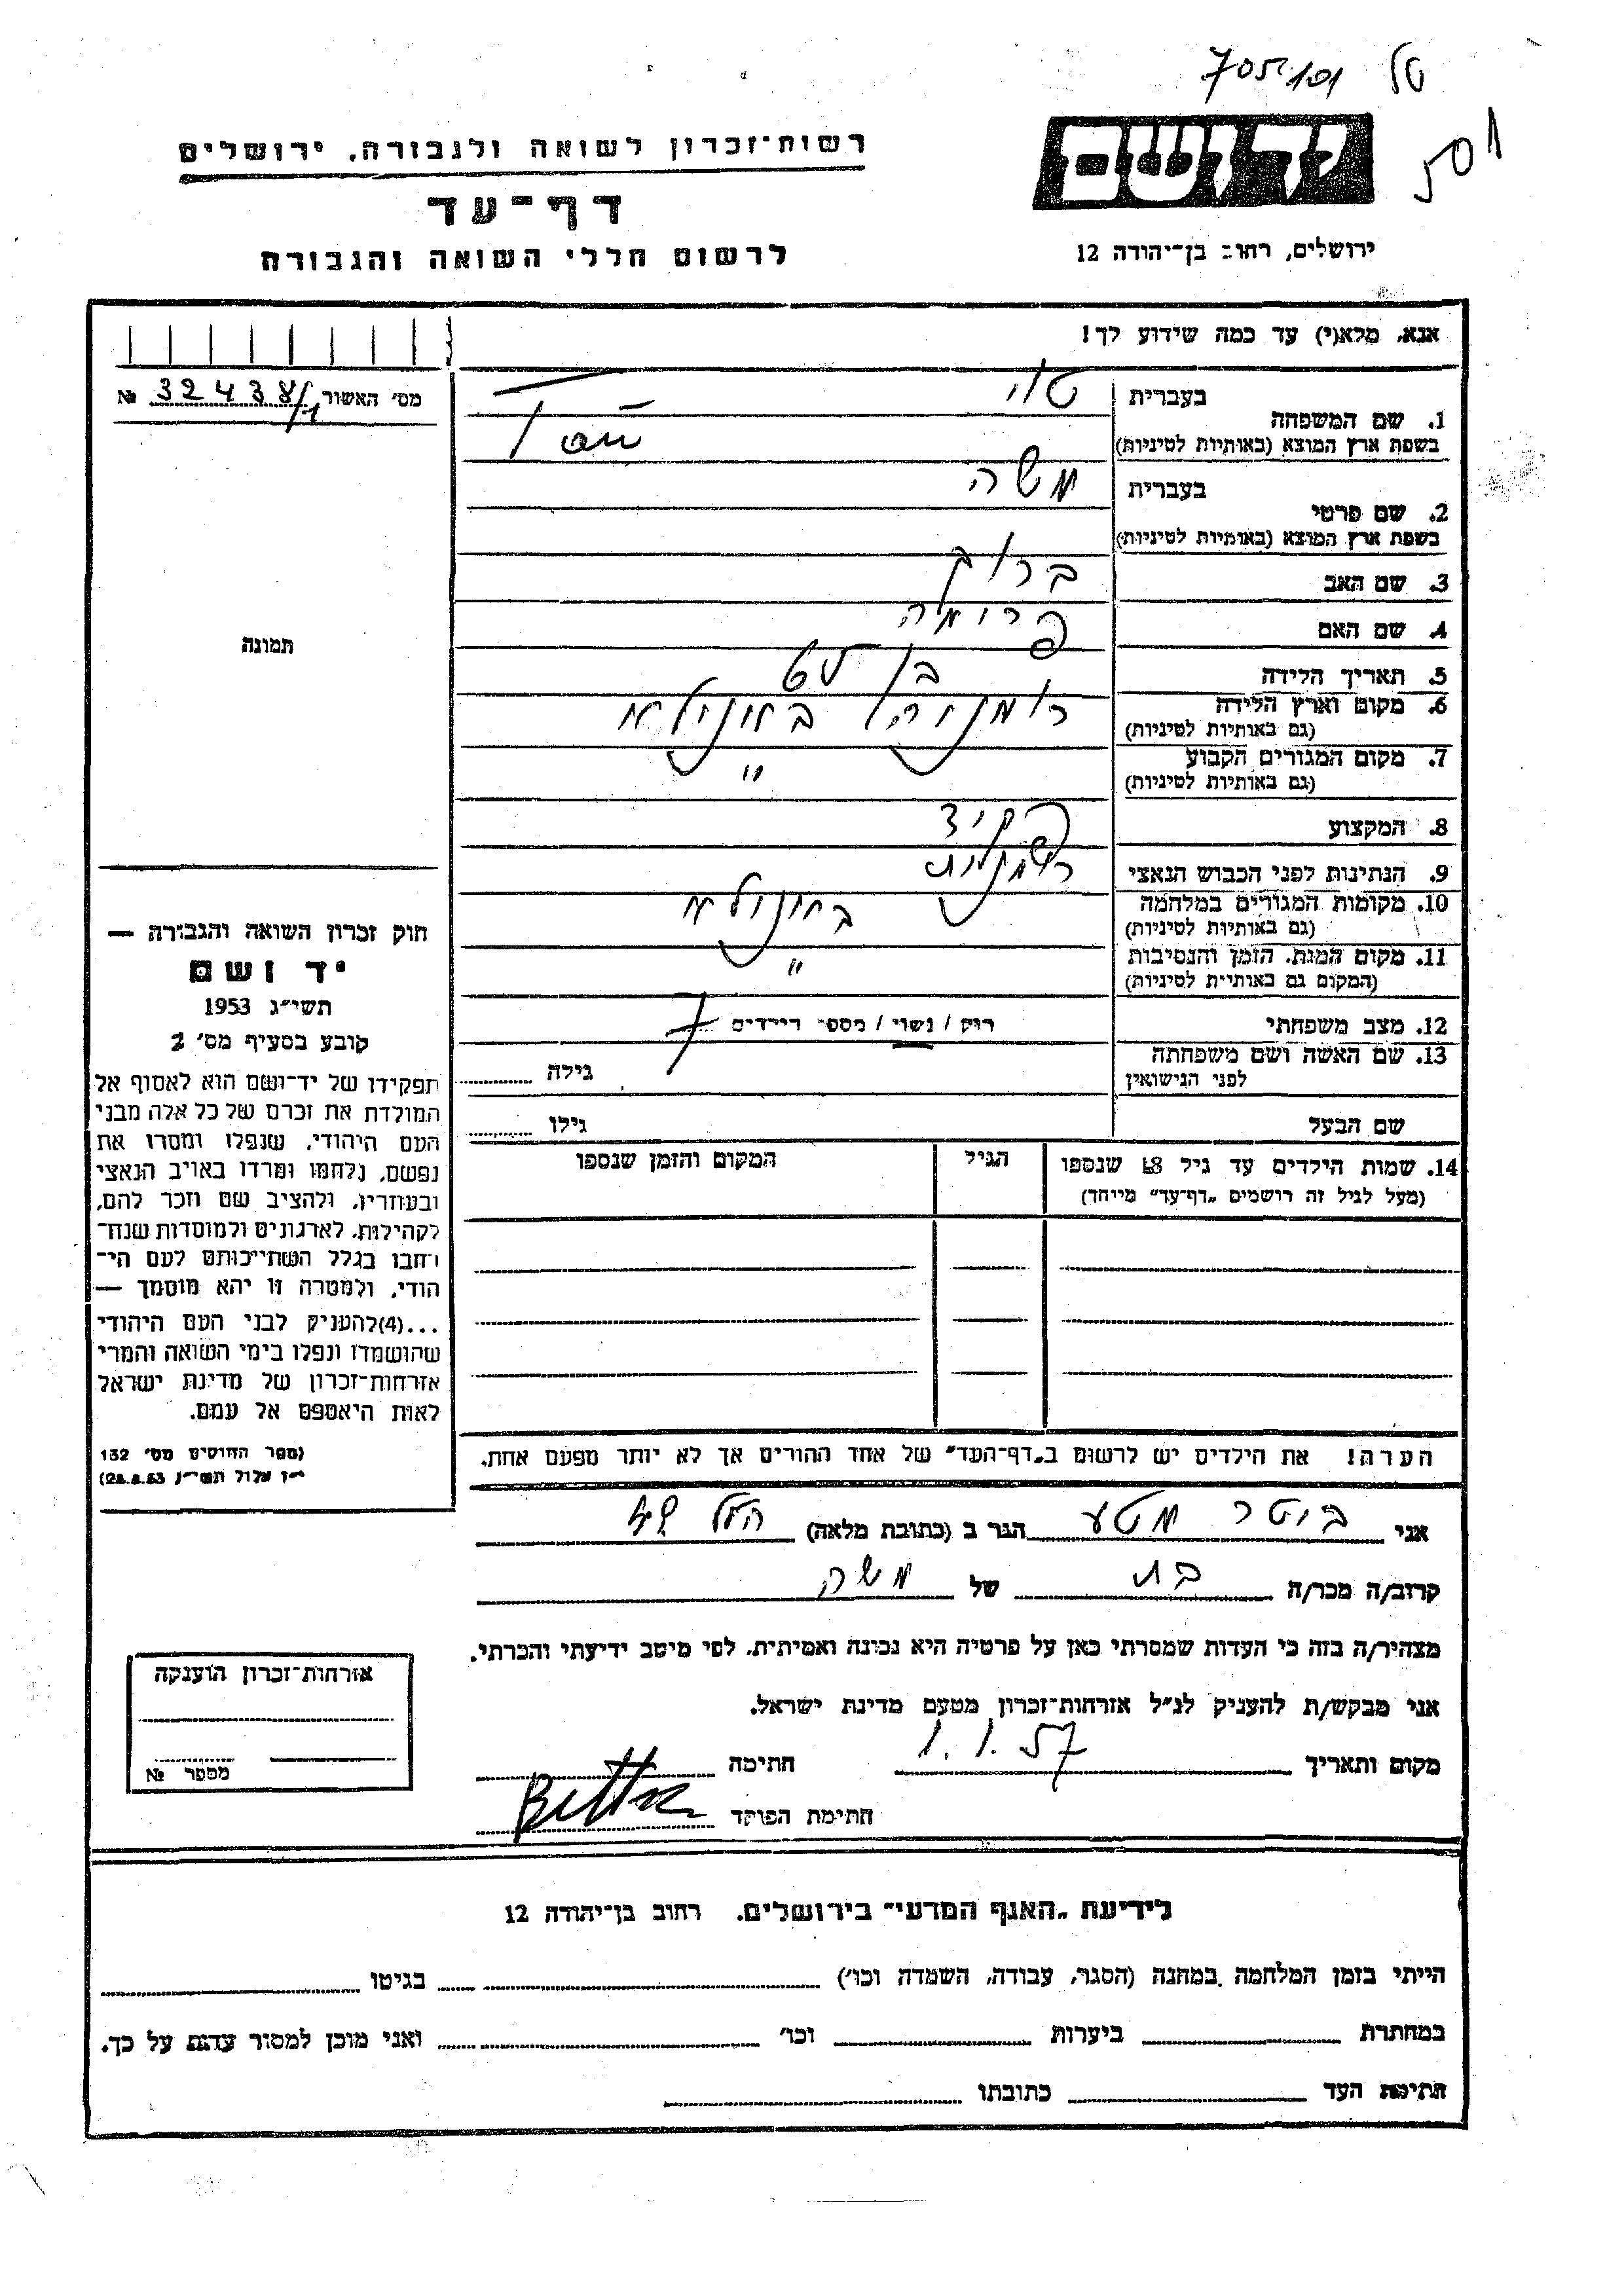 705101 טל
501
יד ושם
ירושלים, רחוב בן־יהודה 12
רשות־זכרון לשואה ולגבורה, ירושלים
דף־עד
לרשום חללי השואה והגבורה
אנא, מלא(י) עד כמה שידוע לך!
מס׳ האשור 32438/1 №
תמונה
1. שם המשפחה
בעברית
בשפת ארץ המוצא (באותיות לטיניות)
2. שם פרטי
בעברית משה
בשפת ארץ המוצא (באותיות לטיניות)
3. שם האב ברוך
4. שם האם פרומה
5. תאריך הלידה בן
6. מקום וארץ הלידה רומניה
(גם באותיות לטיניות)
7. מקום המגורים הקבוע "
(גם באותיות לטיניות)
8. המקצוע פקיד
9. הנתינות לפני הכבוש הנאצי
10. מקומות המגורים במלחמה
(גם באותיות לטיניות)
11. מקום המות, הזמן והנסיבות "
(המקום גם באותיות לטיניות)
12. מצב משפחתי רוק / נשוי / מספר הילדים 7
13. שם האשה ושם משפחתה
לפני הנישואין גילה
שם הבעל גילו
14. שמות הילדים עד גיל 18 שנספו הגיל המקום והזמן שנספו
(מעל לגיל זה רושמים "דף־עד" מייחד)
הערה! את הילדים יש לרשום ב"דף־העד" של אחד ההורים אך לא יותר מפעם אחת.
חוק זכרון השואה והגבורה —
יד ושם
תשי״ג 1953
קובע בסעיף מס׳ 2
תפקידו של יד־ושם הוא לאסוף אל
המולדת את זכרם של כל אלה מבני
העם היהודי, שנפלו ומסרו את
נפשם, נלחמו ומרדו באויב הנאצי
ובעוזריו, ולהציב שם וזכר להם,
לקהילות, לארגונים ולמוסדות שנח־
רחבו בגלל השתייכותם לעם הי־
הודי, ולמטרה זו יהא מוסמך —
...(4)להעניק לבני העם היהודי
שהושמדו ונפלו בימי השואה והמרי
אזרחות־זכרון של מדינת ישראל
לאות היאספם אל עמם.
(ספר החוקים מס׳ 132
י״ז אלול תשי״ג 28.8.53)
אני הגר ב (כתובת מלאה)
קרוב/ה מכר/ה בת של משה
מצהיר/ה בזה כי העדות שמסרתי כאן על פרטיה היא נכונה ואמיתית, לפי מיטב ידיעתי והכרתי.
אני מבקש/ת להעניק לנ״ל אזרחות־זכרון מטעם מדינת ישראל.
מקום ותאריך 1.1.57 חתימה
חתימת הפוקד
אזרחות־זכרון הוענקה
מספר №
לידיעת "האגף המדעי" בירושלים, רחוב בן־יהודה 12
הייתי בזמן המלחמה במחנה (הסגר, עבודה, השמדה וכו׳) בגיטו
במחתרת ביערות וכו׳ ואני מוכן למסור עדות על כך.
חתימת העד כתובתו